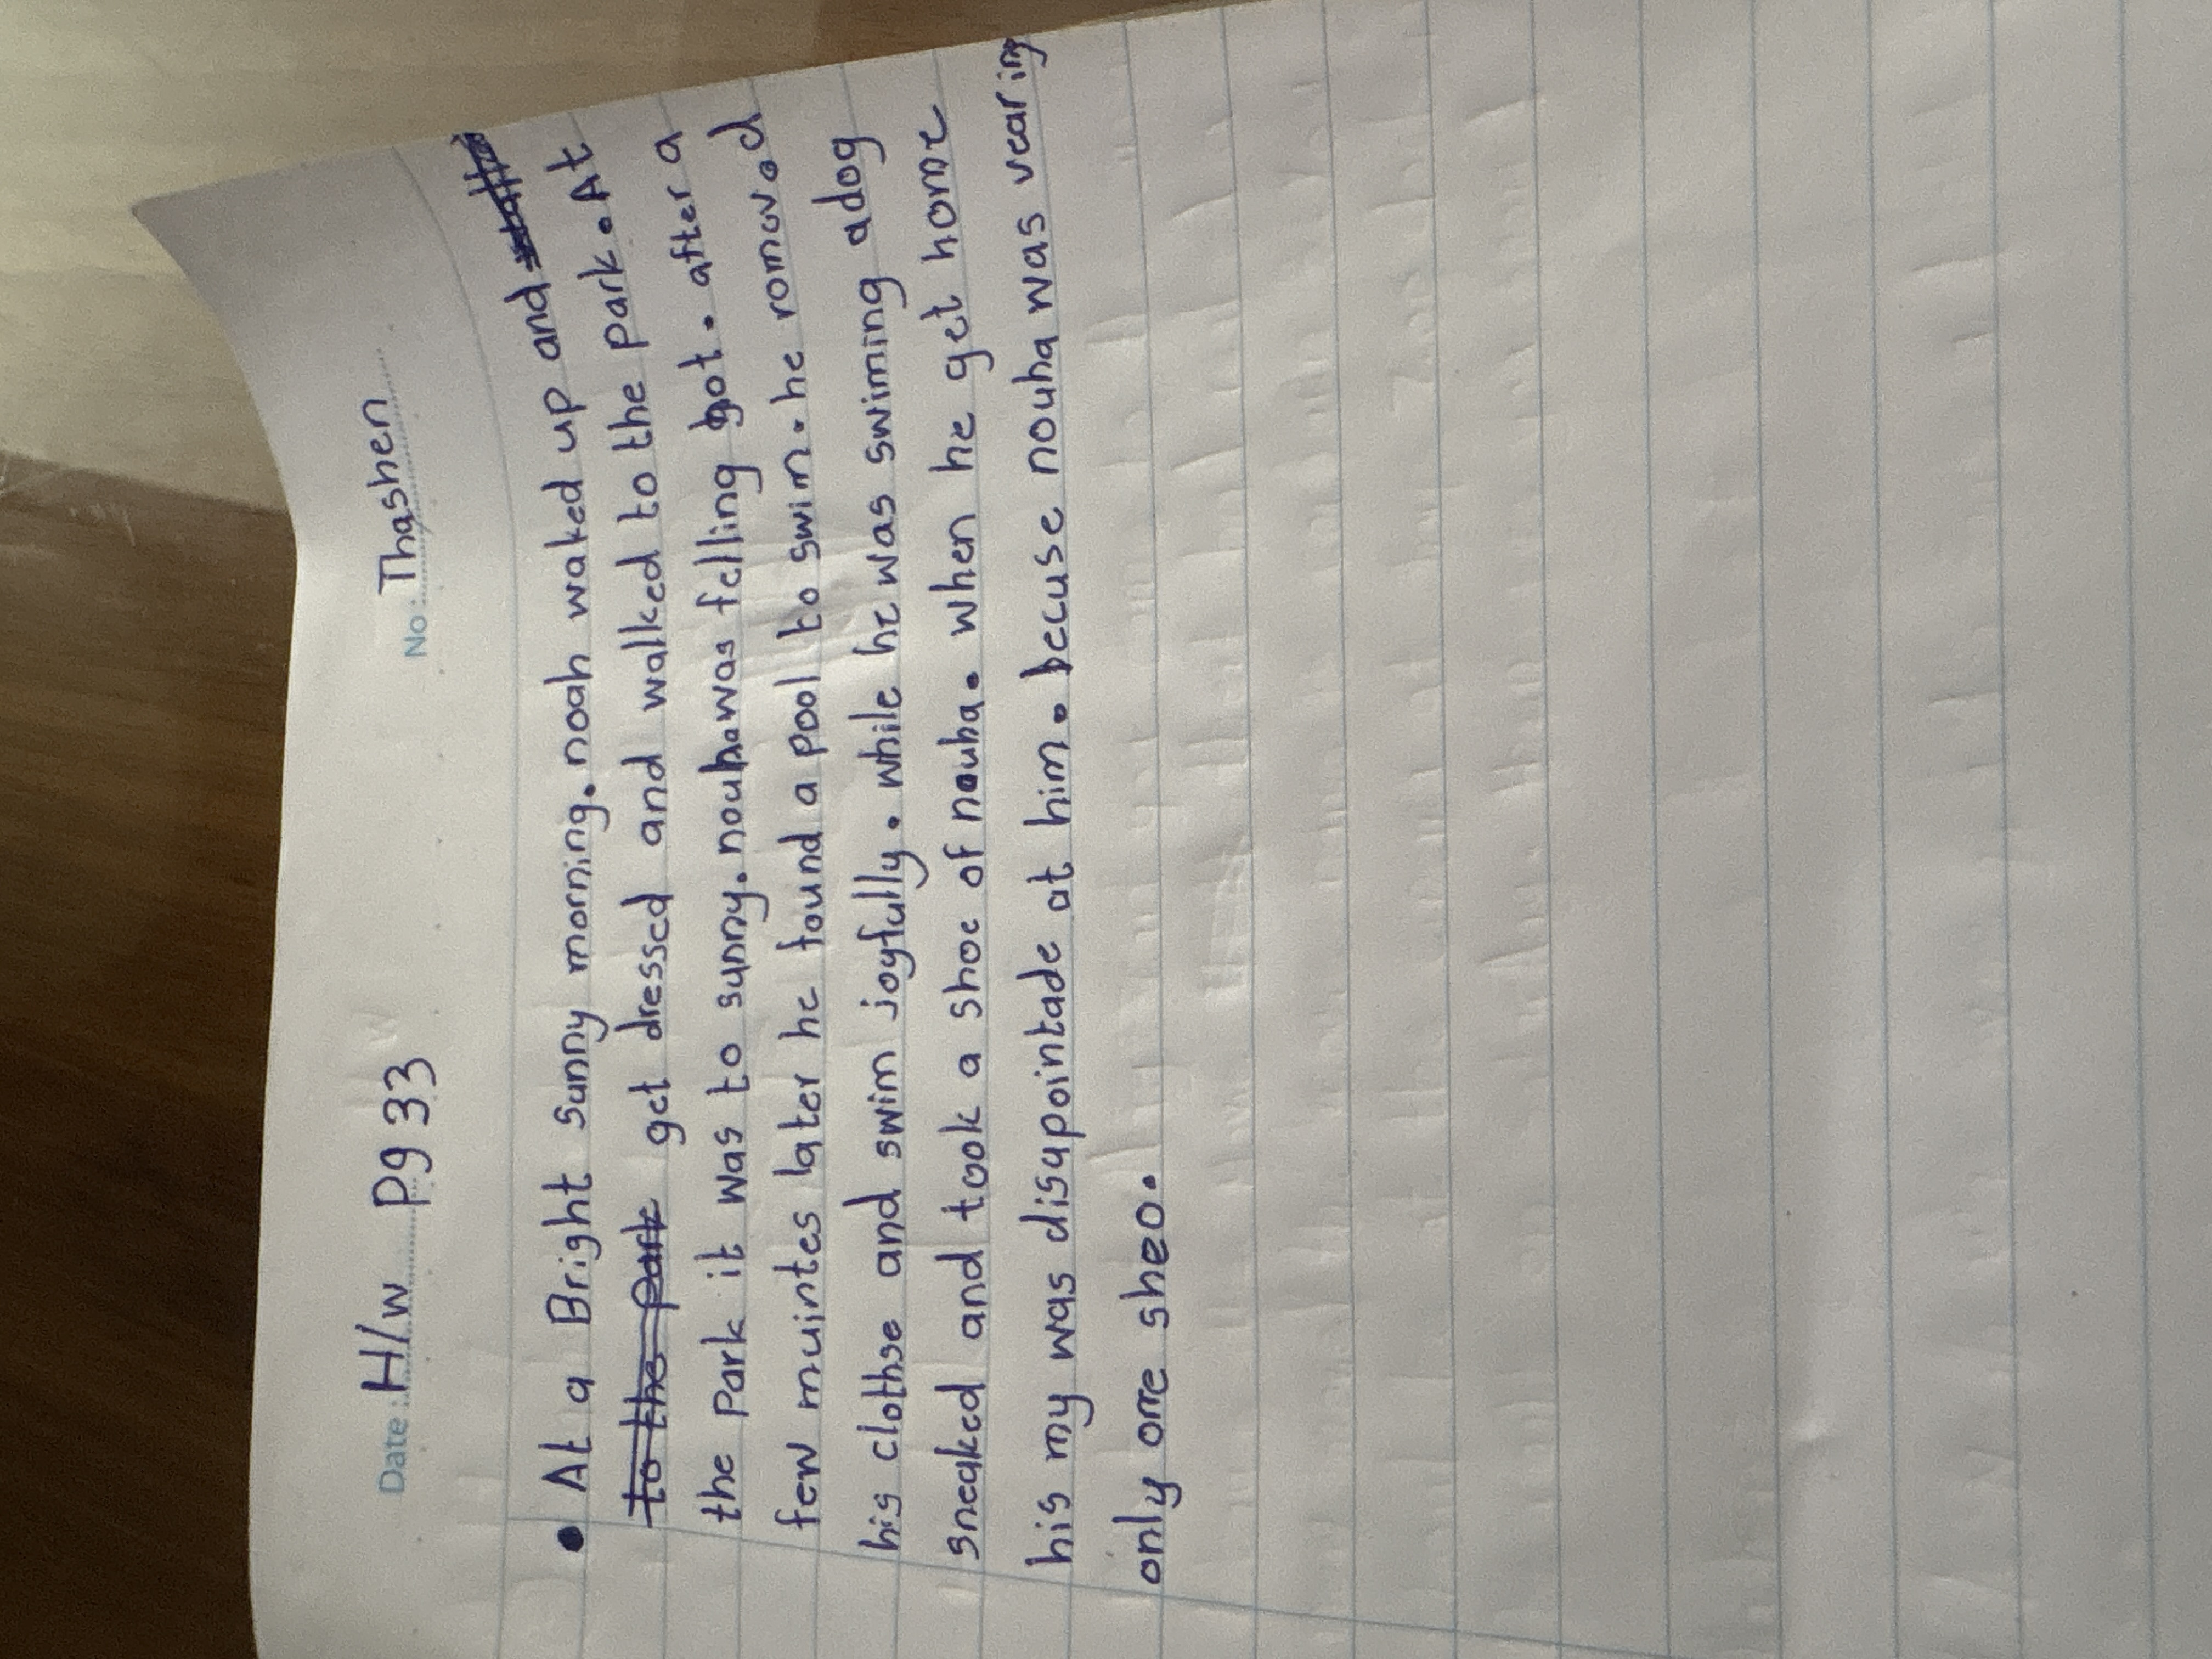 Date: H/w Pg 33 No: Thashen
• At a Bright sunny morning. noah waked up and
to the park get dressed and walked to the park. At
the park it was to sunny. nouha was felling hot. after a
few muintes later he found a pool to swim. he romoved
his clothse and swim joyfully. while he was swiming adog
sneaked and took a shoe of nouha. when he get home
his my was disapointade at him. becuse nouha was vearing
only one sheo.